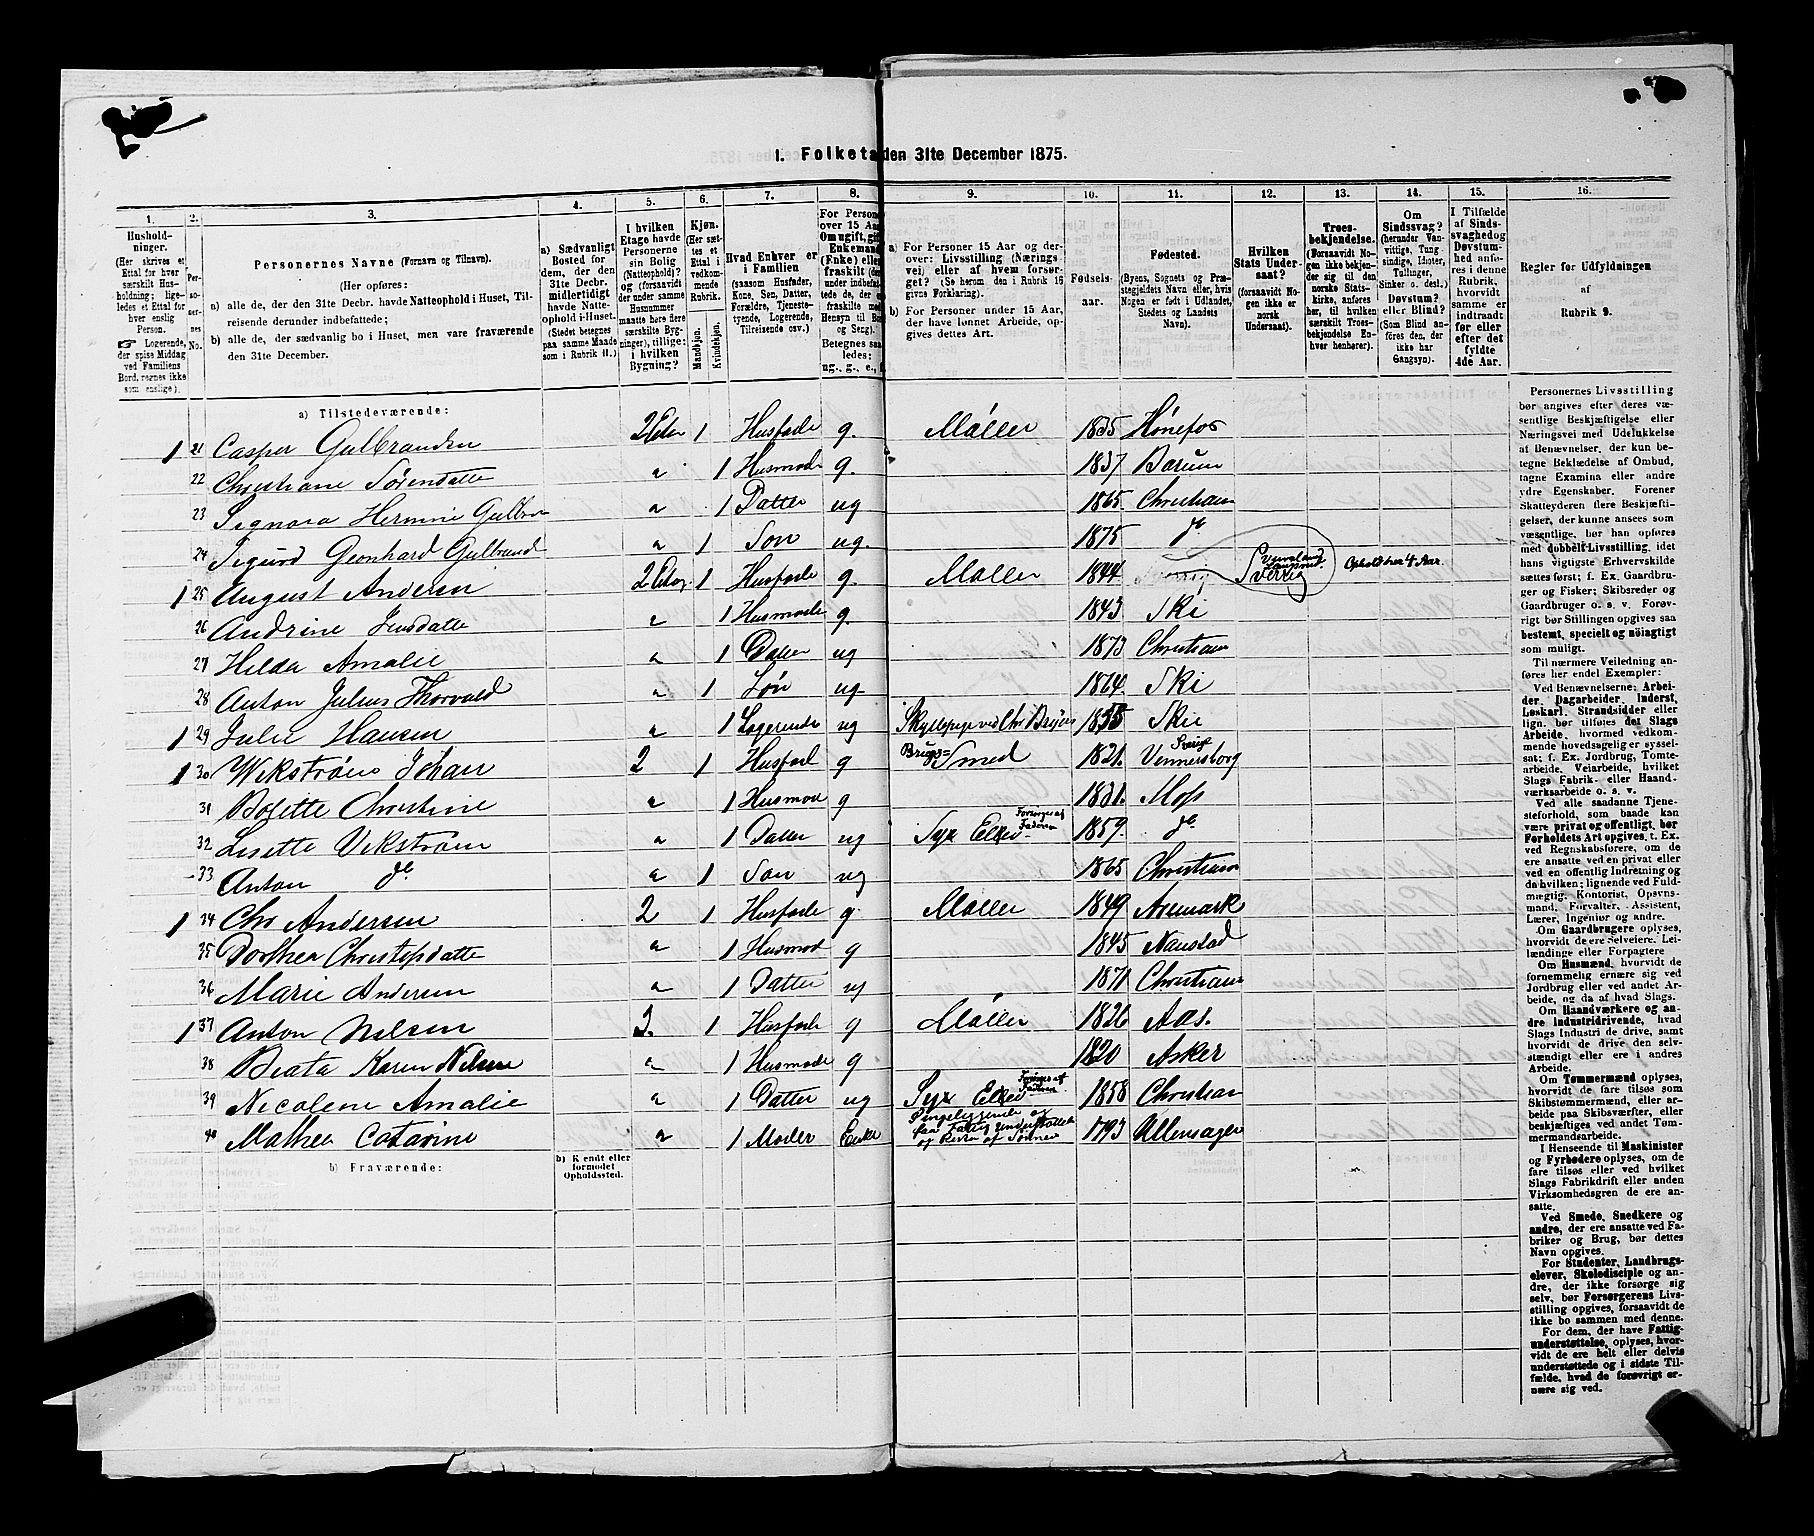 1. Folketa den 31te December 1875.
1. 2. 3. 4. 5. 6. 7. 8. 9. 10. 11. 12. 13. 14. 15. 16.
Hushold-
ninger.
(Her skrives et
Ettal for hver
særskilt Hus-
holdning; lige-
ledes et Ettal for
hver enslig
Person.
☞ Logerende,
der spise Middag
ved Familiens
Bord, regnes ikke
som enslige).
Per-
so-
ner-
nes
No.
Personernes Navne (Fornavn og Tilnavn).
(Her opføres:
a) alle de, der den 31te Decbr. havde Natteophold i Huset, Til-
reisende derunder indbefattede;
b) alle de, der sædvanlig bo i Huset, men vare fraværende
den 31te December.
a) Sædvanligt
Bosted for
dem, der den
31te Decbr.
midlertidigt
havde Natte-
ophold i Huset.
(Stedet betegnes
paa samme Maade
som i Rubrik 11.)
I hvilken
Etage havde
Personerne
sin Bolig
(Natteophold)?
og (forsaavidt
der under samme
Husnummer
maatte høre flere
særskilte Byg-
ninger), tillige:
i hvilken
Bygning?
Kjøn.
(Her sæt-
tes et
Ettal i
vedkom-
mende
Rubrik.
Mandkjøn.
Kvindekjøn.
Hvad Enhver er
i Familien
(saasom Husfader,
Kone, Søn, Datter,
Forældre, Tjeneste-
tyende, Logerende,
Tilreisende osv.)
For Persone
over 15 Aa
Om ugift, gift
Enkemand
(Enke) elle
fraskilt (der
under indbefat-
tede de, der
fraskilte med
Hensyn til Bo
og Seng).
Betegnes saa-
ledes:
ug., g., e.,
a) For Personer 15 Aar og der-
over: Livsstilling (Nærings-
vei) eller af hvem forsør-
get? (Se herom den i Rubrik 16
givne Forklaring).
b) For Personer under 15 Aar,
der have lønnet Arbeide, op-
gives dettes Art.
Fødsels-
aar.
Fødested.
(Byens, Sognets og Præ-
stegjeldets Navn eller, hvis
Nogen er født i Udlandet,
Stedets og Landets
Navn).
Hvilken
Stats Under-
saat?
(forsaavidt No-
gen ikke er
norsk
Undersaat).
Troes-
bekjendelse.
(Forsaavidt No-
gen ikke bekjen-
der sig til den
norske Stats-
kirke, anføres
her, til hvilken
særskilt Troes-
bekjendelse En-
hver henhører).
Om
Sindssvag?
(herunder Van-
vittige, Tung-
sindige, Idioter,
Tullinger,
Sinker o. desl.)
Døvstum?
eller Blind?
(Som Blind an-
føres den, der
ikke har
Gangsyn).
I Tilfælde
af Sinds-
svaghed og
Døvstum-
hed anfø-
res i denne
Rubrik,
hvorvidt
samme er
indtraadt
før eller
efter det
fyldte
4de Aar.
Regler for Udfyldningen
af
Rubrik 9.
a) Tilstedeværende:
1 21 Casper Gulbrandsen 2 Etag 1 Husfade g. Møller 1835 Hønefos
22 Christiane Sørensdatte " 1 Husmode g. 1837 Bærum
23 Signora Hermine Gulbran " 1 Datter ug 1865. Christiania
24 Sigurd Geonhard Gulbrand " 1 Søn ug. 1875 do
1 25 August Andersen 2 Etag 1 Husfade g. Møller 1844 Sverrig Sverrig Ophold her 4 Aar.
26 Andrine Jensdatte " 1 Husmode g. 1843 Ski
27 Hilda Amalie " 1 Datter ug 1873 Christiania
28 Anton Julius Thorvald " 1 Søn ug 1864. Ski
1 29 Julie Hansen " 1 Logerende ug Skyllepige ved Chr Bryg 1855 Skie
1 30 Wekstrøm Johan 2 1 Husfad g Brugs= Smed 1821. Vennersborg Sverige
31 Bolette Christine " 1 Husmod g 1831. Moss
32 Lisette Vekstrøm " 1 Datter ug Syr Elev Forsørges af Faderen 1859. do
33 Anton do " 1 Søn ug 1865 Christiania
1 34 Chr Andersen 2 1 Husfade g. Møller 1849 Aremark
35 Dorthea Christopsdatte " 1 Husmod g 1845 Nanstad
36 Marie Andersen " 1 Datter ug 1871 Christiania
1 37 Anton Nilsen 2. 1 Husfade g Møller 1826 Aas.
38 Beata Karen Nilsen " 1 Husmode g 1820 Asker
39 Nicolene Amalie " 1 Datter ug Syr Elev Forsørges af Faderen 1858 Christian
40 Mathea Catarine " 1 Moder Enke Sengeliggende og faar Fattig understøttelse og Resten af Sønnen 1793 Ullensager
b) Fraværende:
b) Kjendt eller
formodet
Opholdssted.
Personernes Livsstilling
bør angives efter deres væ-
sentlige Beskjæftigelse eller
Næringsvei med Udelukkelse
af Benævnelser, der kun be-
tegne Beklædelse af Ombud,
tagne Examina eller andre
ydre Egenskaber. Forener
Skatteyderen flere Beskjæfti-
gelser, der kunne ansees som
væsentlige, bør han opføres
med dobbelt Livsstilling, idet
hans vigtigste Erhvervskilde
sættes først; f. Ex. Gaardbru-
ger og Fisker; Skibsreder og
Gaardbruger o. s. v. Forøv-
rigt bør Stillingen opgives saa
bestemt, specielt og nøiagtigt
som muligt.
Til nærmere Veiledning an-
føres her endel Exempler:
Ved Benævnelserne: Arbei-
der, Dagarbeider, Inderst,
Løskarl, Strandsidder eller
lign. bør tilføies det Slags
Arbeide, hvormed vedkom-
mende hovedsagelig er syssel-
sat; f. Ex. Jordbrug, Tomte-
arbeide, Veiarbeide, hvilket
Slags Fabrik- eller Haand-
værksarbeide o. s. v.
Ved alle saadanne Tjene-
steforhold, som baade kan
være privat og offentligt, bør
Forholdets Art opgives, t. Ex.
ved Regnskabsførere, om de
ere ansatte ved en privat eller
ved en offentlig Indretning og
da hvilken; lignende ved Fuld-
mægtig, Kontorist, Opsyns-
mand, Forvalter, Assistent,
Lærer, Ingeniør og andre.
Om Gaardbrugere oplyses,
hvorvidt de ere Selveiere, Lei-
lændinge eller Forpagtere
Om Husmænd, hvorvidt de
fornemmelig ernære sig ved
Jordbrug eller ved andet Ar-
beide, og da af hvad Slags.
Om Haandværkere og an-
dre Industridrivende, hvad
Slags Industri de drive, samt
hvorvidt de drive den selv-
stændigt eller ere i andres
Arbeide.
Om Tømmermænd oplyses,
hvorvidt de fare tilsøs som
Skibstømmermænd, eller ar-
beide paa Skibsværfter, eller
beskjæftiges ved andet Tøm-
mermandsarbeide.
I Henseende til Maskinister
og Fyrbødere oplyses, om de
fare tilsøs eller ved hvilket
Slags Fabrikdrift eller anden
Virksomhedsgren de ere an-
satte.
Ved Smede, Snedkere og
andre, der ere ansatte ved Fa-
briker og Brug, bør dettes
Navn opgives.
For Studenter, Landbrugs-
elever, Skoledisciple og an-
dre, der ikke forsørge sig
selv, bør Forsørgerens Livs-
stilling opgives, forsaavidt de
ikke bo sammen med denne.
For dem, der have Fattig-
understøttelse, oplyses, hvor-
vidt de ere helt eller delvis
understøttede og i sidste Til-
fælde, hvad de forøvrigt er-
nære sig ved.